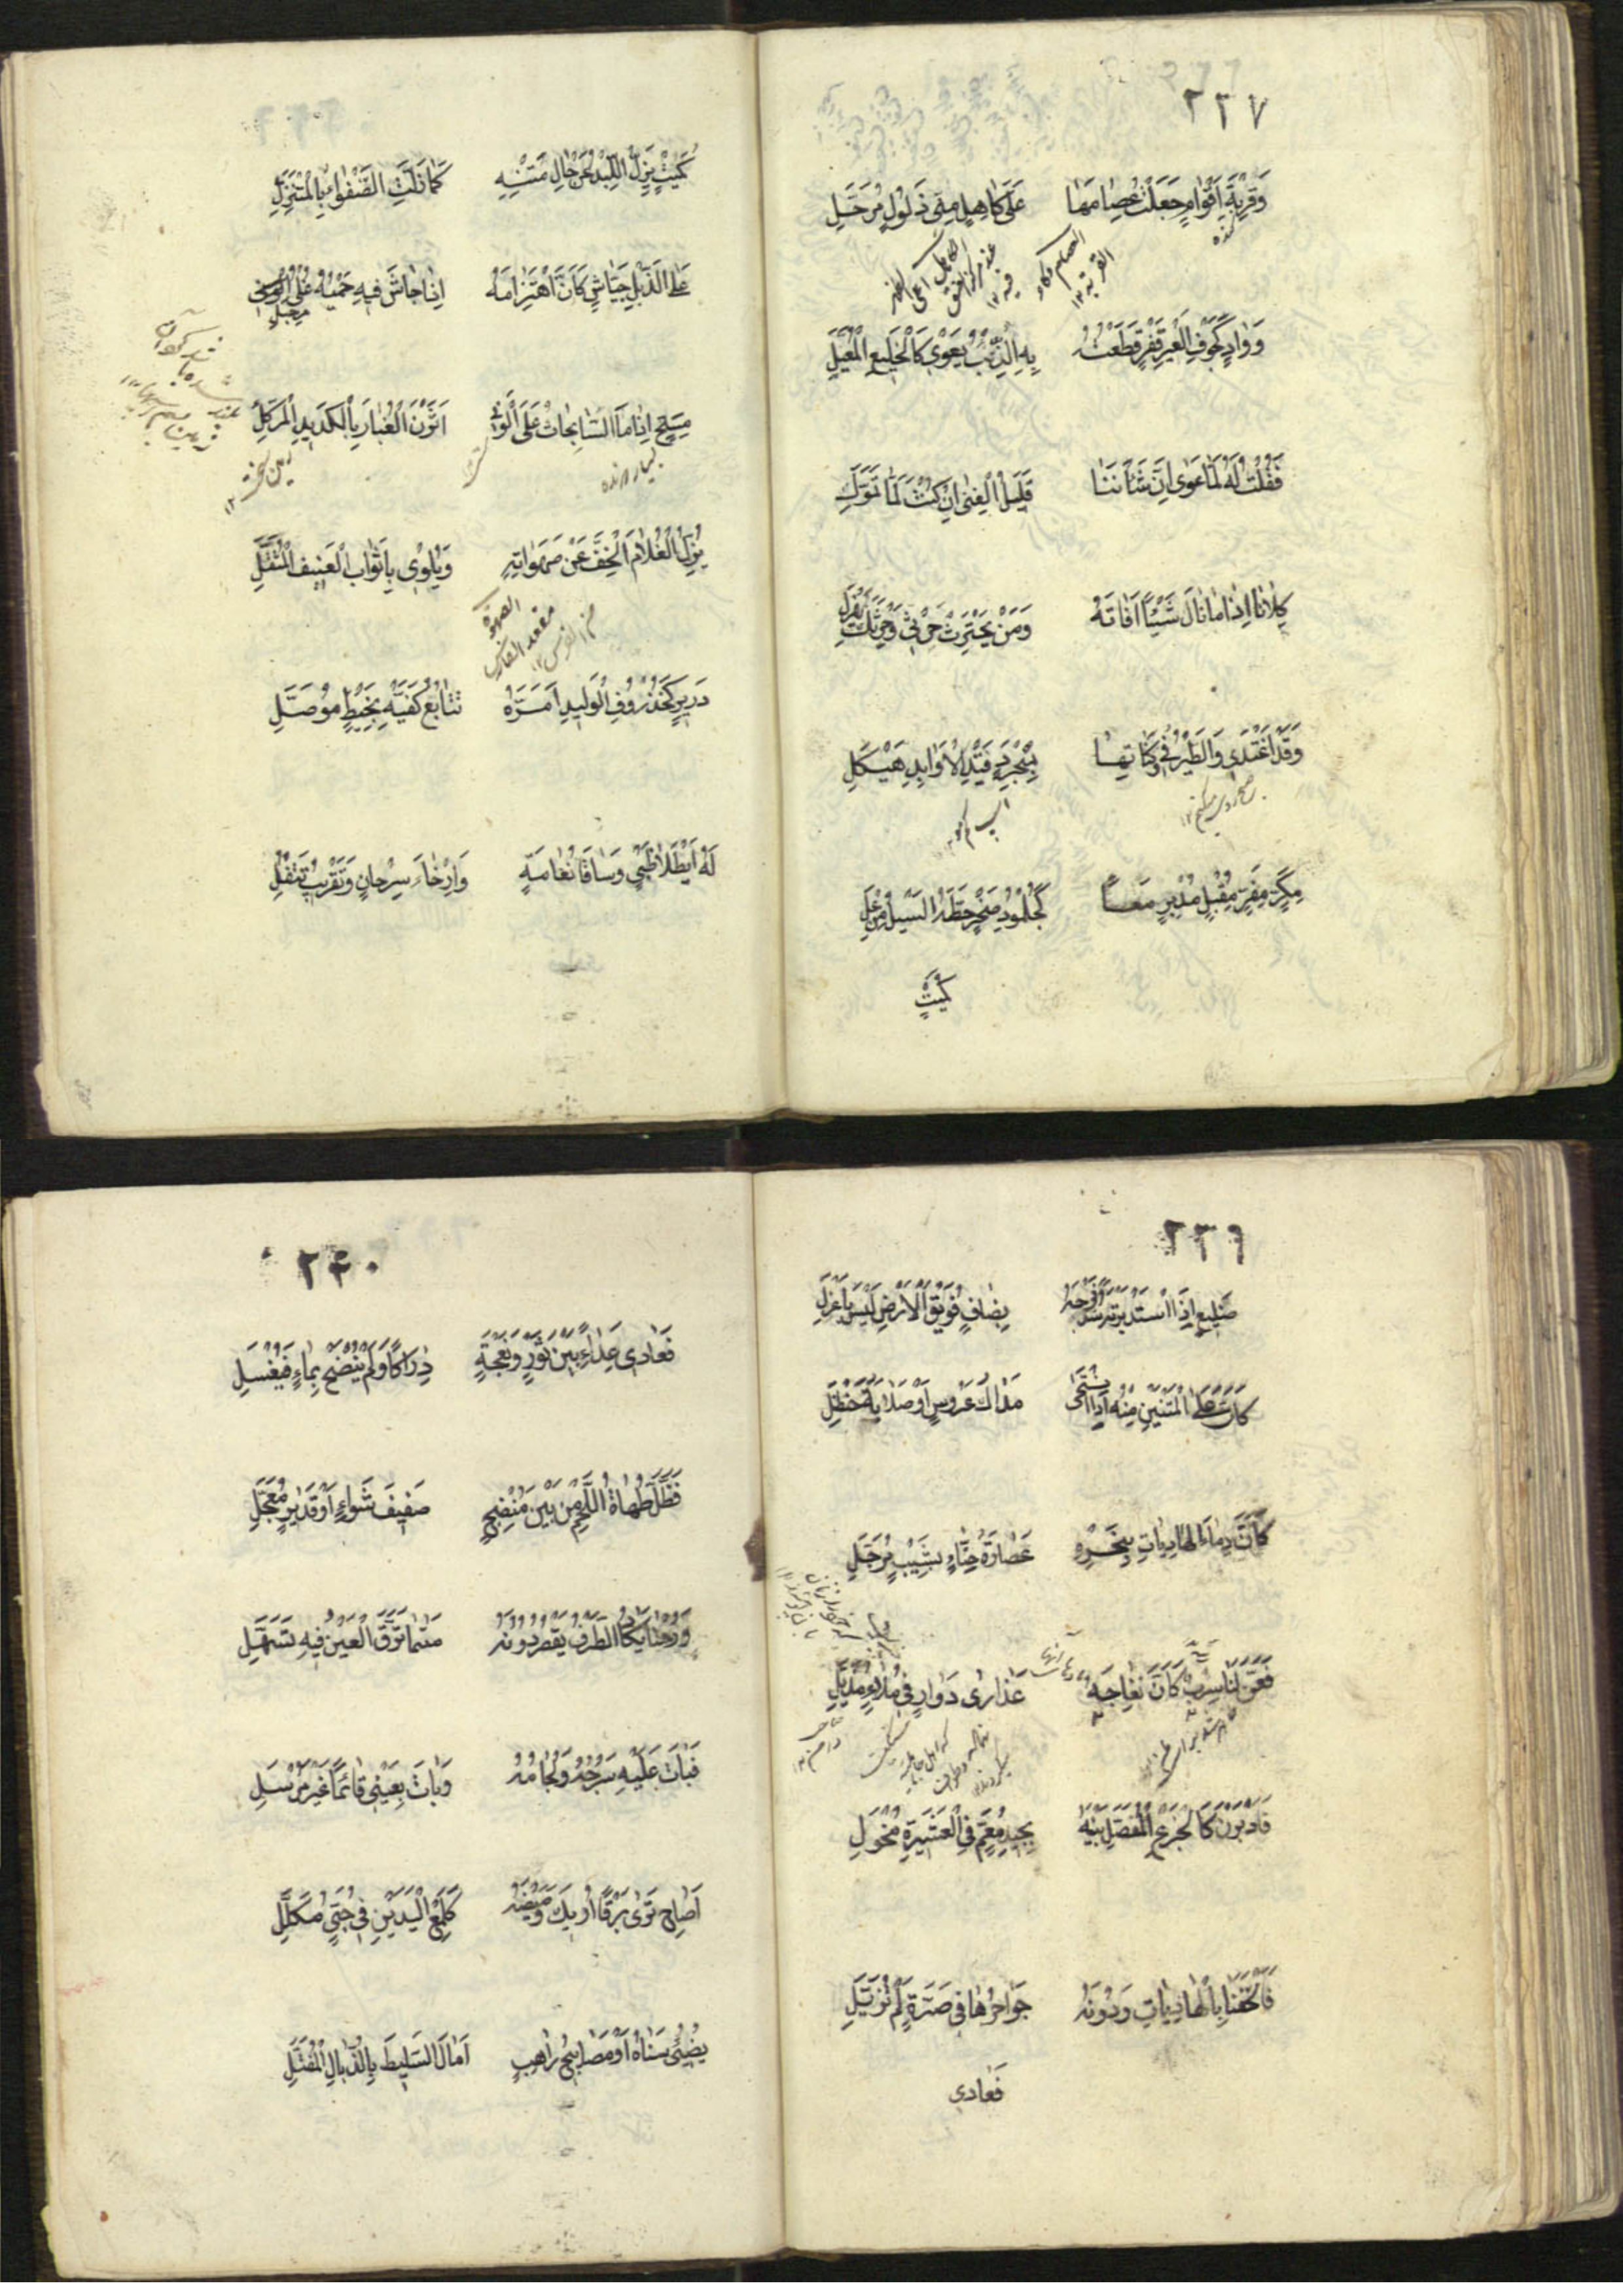 ٢٣٧
وَقِرْبَةِ اَقْوَامٍ جَعَلْتُ عِصَامَهَا عَلَى كَاهِلٍ مِنِّي ذَلُولٍ مُرَحَّلِ
العصام وكاء القربة ١٢
وَوَادٍ كَجَوْفِ الْعَيْرِ قَفْرٍ قَطَعْتُهُ بِهِ الذِّئْبُ يَعْوِي كَالْخَلِيعِ الْمُعَيَّلِ
فَقُلْتُ لَهُ لَمَّا عَوَى اِنَّ شَأْنَنَا قَلِيلُ الْغِنَى اِنْ كُنْتَ لَمَّا تَمَوَّلِ
كِلَانَا اِذَا مَا نَالَ شَيْئًا اَفَاتَهُ وَمَنْ يَحْتَرِثْ حَرْثِي وَحَرْثَكَ يَهْزَلِ
وَقَدْ اَغْتَدِي وَالطَّيْرُ فِي وُكُنَاتِهَا بِمُنْجَرِدٍ قَيْدِ الْاَوَابِدِ هَيْكَلِ
مِكَرٍّ مِفَرٍّ مُقْبِلٍ مُدْبِرٍ مَعًا كَجُلْمُودِ صَخْرٍ حَطَّهُ السَّيْلُ مِنْ عَلِ
كُمَيْتٍ
كُمَيْتٍ يَزِلُّ اللِّبْدُ عَنْ حَالِ مَتْنِهِ كَمَا زَلَّتِ الصَّفْوَاءُ بِالْمُتَنَزِّلِ
عَلَى الذَّبْلِ جَيَّاشٍ كَاَنَّ اهْتِزَامَهُ اِذَا جَاشَ فِيهِ حَمْيُهُ غَلْيُ مِرْجَلِ
مِسَحٍّ اِذَا مَا السَّابِحَاتُ عَلَى الْوَنَى اَثَرْنَ الْغُبَارَ بِالْكَدِيدِ الْمُرَكَّلِ
يُزِلُّ الْغُلَامَ الْخِفَّ عَنْ صَهَوَاتِهِ وَيُلْوِي بِاَثْوَابِ الْعَنِيفِ الْمُثَقَّلِ
الصهوة مقعد الفارس من الفرس ١٢
دَرِيرٍ كَخُذْرُوفِ الْوَلِيدِ اَمَرَّهُ تَتَابُعُ كَفَّيْهِ بِخَيْطٍ مُوَصَّلِ
لَهُ اَيْطَلَا ظَبْيٍ وَسَاقَا نَعَامَةٍ وَاِرْخَاءُ سِرْحَانٍ وَتَقْرِيبُ تَتْفُلِ
٢٣٩
ضَلِيعٍ اِذَا اسْتَدْبَرْتَهُ سَدَّ فَرْجَهُ بِضَافٍ فُوَيْقَ الْاَرْضِ لَيْسَ بِاَعْزَلِ
كَاَنَّ عَلَى الْمَتْنَيْنِ مِنْهُ اِذَا انْتَحَى مَدَاكُ عَرُوسٍ اَوْ صَلَايَةُ حَنْظَلِ
كَاَنَّ دِمَاءَ الْهَادِيَاتِ بِنَحْرِهِ عُصَارَةُ حِنَّاءٍ بِشَيْبٍ مُرَجَّلِ
فَعَنَّ لَنَا سِرْبٌ كَاَنَّ نِعَاجَهُ عَذَارَى دَوَارٍ فِي مُلَاءٍ مُذَيَّلِ
فَاَدْبَرْنَ كَالْجَزْعِ الْمُفَصَّلِ بَيْنَهُ بِجِيدِ مُعَمٍّ فِي الْعَشِيرَةِ مُخْوَلِ
فَاَلْحَقَنَا بِالْهَادِيَاتِ وَدُونَهُ جَوَاحِرُهَا فِي صَرَّةٍ لَمْ تُزَيَّلِ
فَعَادَى
٢٤٠
فَعَادَى عِدَاءً بَيْنَ ثَوْرٍ وَنَعْجَةٍ دِرَاكًا وَلَمْ يُنْضَحْ بِمَاءٍ فَيُغْسَلِ
فَظَلَّ طُهَاةُ اللَّحْمِ مِنْ بَيْنِ مُنْضِجٍ صَفِيفَ شِوَاءٍ اَوْ قَدِيرٍ مُعَجَّلِ
وَرُحْنَا يَكَادُ الطَّرْفُ يَقْصُرُ دُونَهُ مَتَى مَا تَرَقَّ الْعَيْنُ فِيهِ تَسَهَّلِ
فَبَاتَ عَلَيْهِ سَرْجُهُ وَلِجَامُهُ وَبَاتَ بِعَيْنِي قَائِمًا غَيْرَ مُرْسَلِ
اَصَاحِ تَرَى بَرْقًا اُرِيكَ وَمِيضَهُ كَلَمْعِ الْيَدَيْنِ فِي حَبِيٍّ مُكَلَّلِ
يُضِيءُ سَنَاهُ اَوْ مَصَابِيحُ رَاهِبٍ اَمَالَ السَّلِيطَ بِالذُّبَالِ الْمُفَتَّلِ